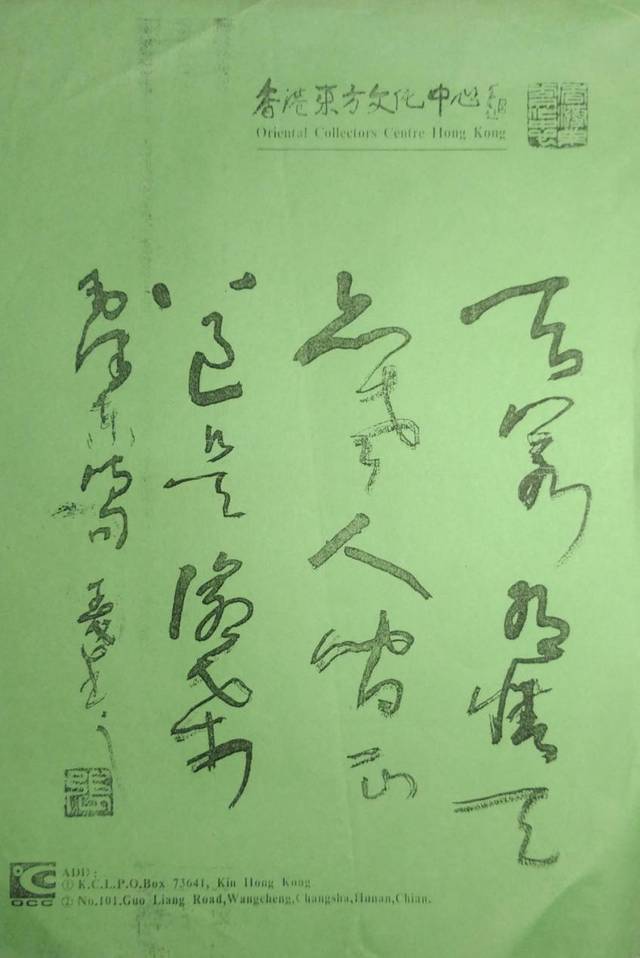 香港東方文化中心
Oriental Collectors Centre Hong Kong
天若有情天
亦老人間正
道是滄桑
毛泽东詩句
OCC
ADD:
① K.C.L.P.O.Box 73641, Kin Hong Kong
② No.101.Guo Liang Road,Wangcheng,Changsha,Hunan,Chian.